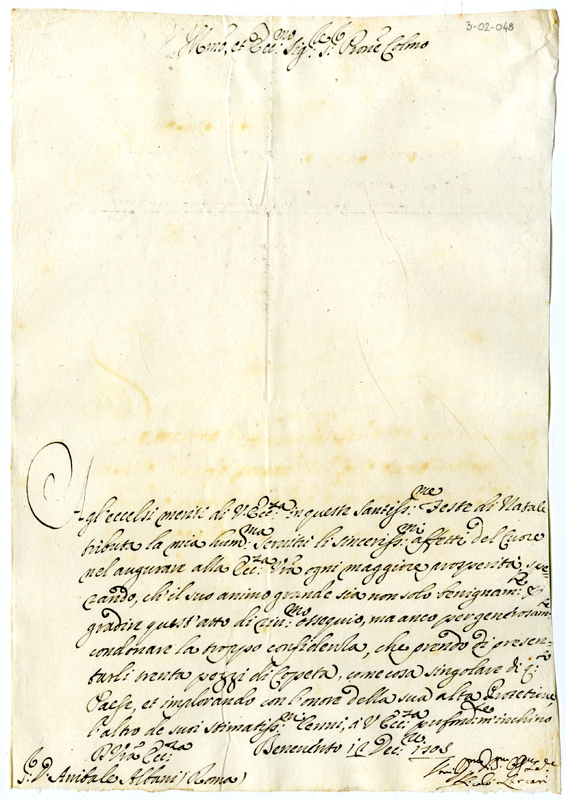 3-02-048
Ill.mo, et Ecc.mo Sig.re Sig.r P.rone Colmo
Agl'eccelsi meriti di V. Ecc.za in queste Santiss.me Feste di Natale
tributa la mia hum.ma Servitù li sinceriss.mi affetti del Cuore
nel augurare alla Ecc.za Vra ogni maggiore prosperità, spe=
rando, ch'il suo animo grande sia non solo benignam.te p
gradire quest'atto di mio ossequio, ma anco per generosam.te
condonare la troppo confidenza, che prendo di presen=
tarli trenta pezzi di Copeta, come cosa singolare di q.to
Paese, et implorando con l'onore della sua alta Protetione,
l'altro de suoi stimatiss.mi Cenni, à V. Ecc.za profond.te m'inchino
D V.ra Ecc.za Benevento Dec.bre 1708
S.r D. Anibale Albani (Roma)